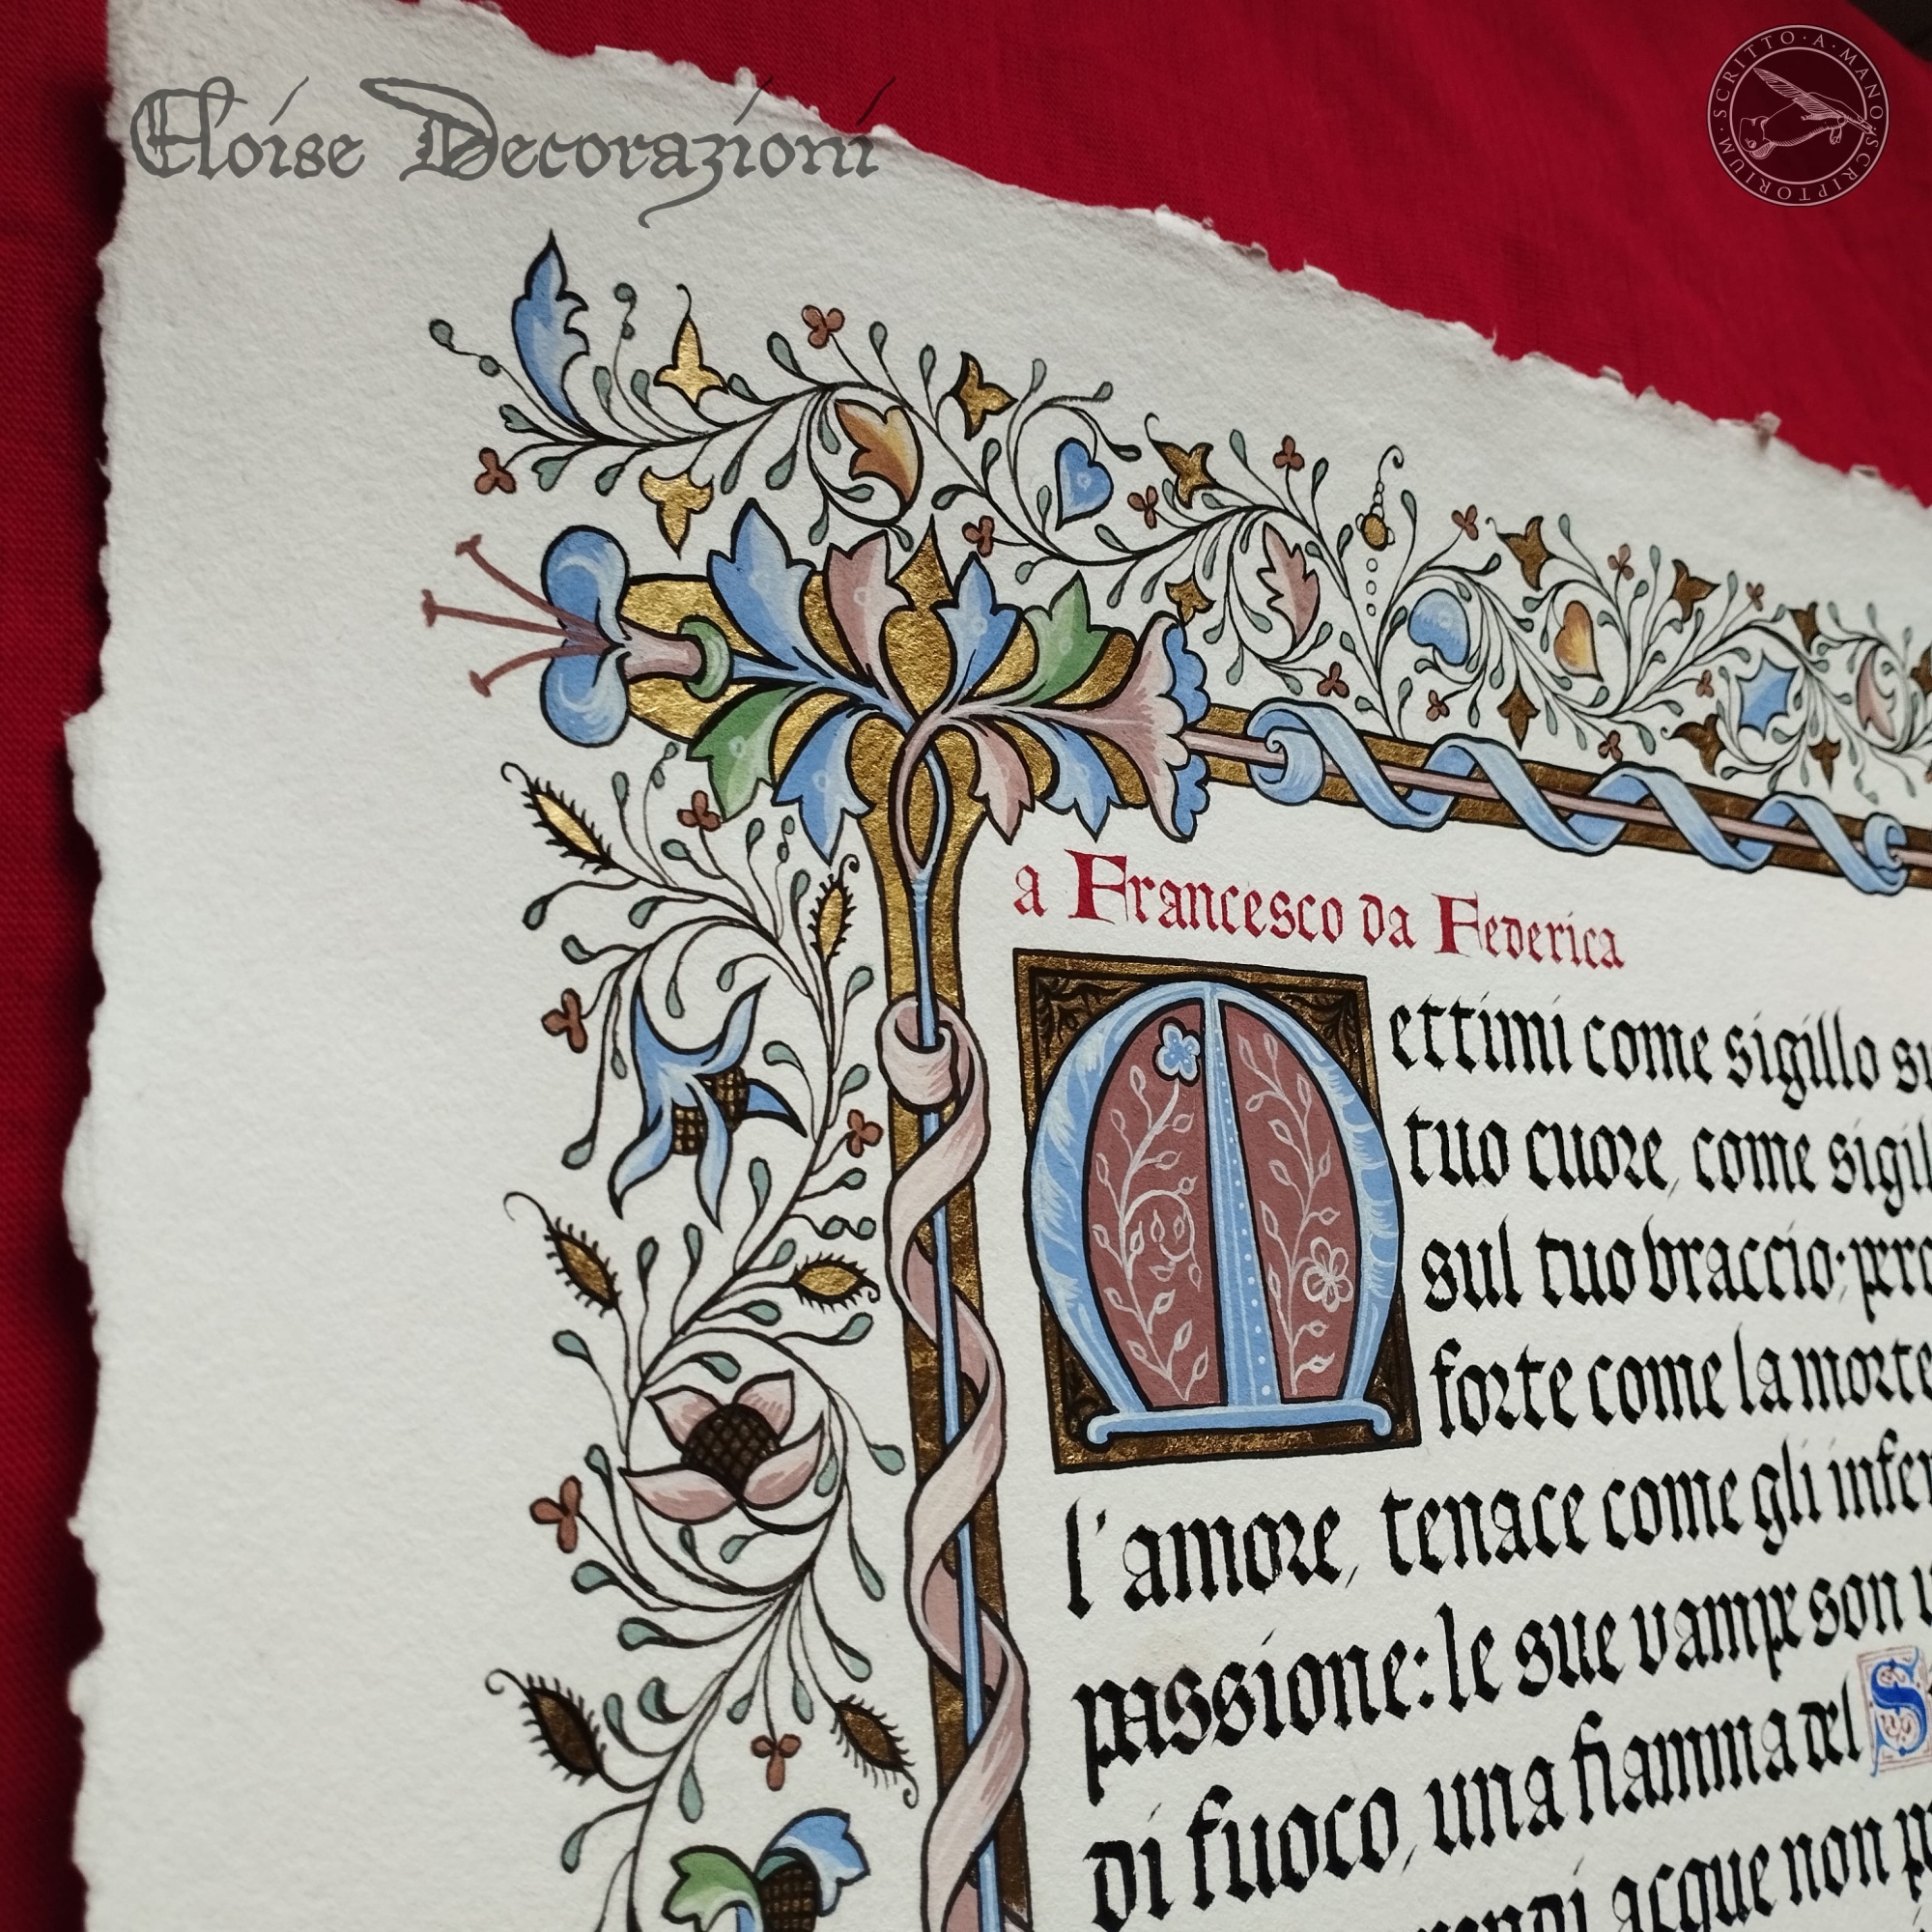 Eloise Decorazioni
SCRITTO · A · MANO · SCRIPTORIUM ·
a Francesco da Federica
Mettimi come sigillo
tuo cuore, come
sul tuo braccio;
forte come la morte
l'amore, tenace come gli
passione: le sue vampe son
di fuoco, una fiamma del
acque non